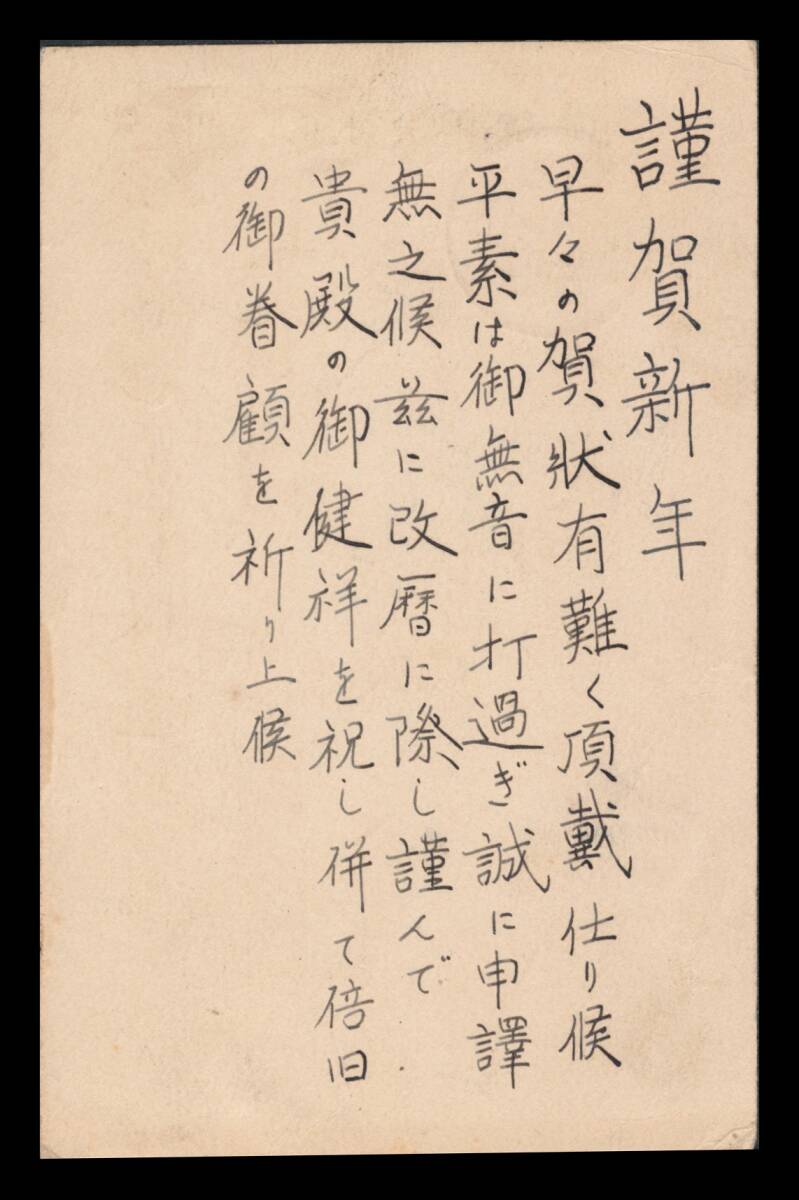 謹賀新年
早々の賀狀有難く頂戴仕り候
平素は御無音に打過ぎ誠に申譯
無之候茲に改暦に際し謹んで
貴殿の御健祥を祝し併て倍旧
の御眷顧を祈り上候